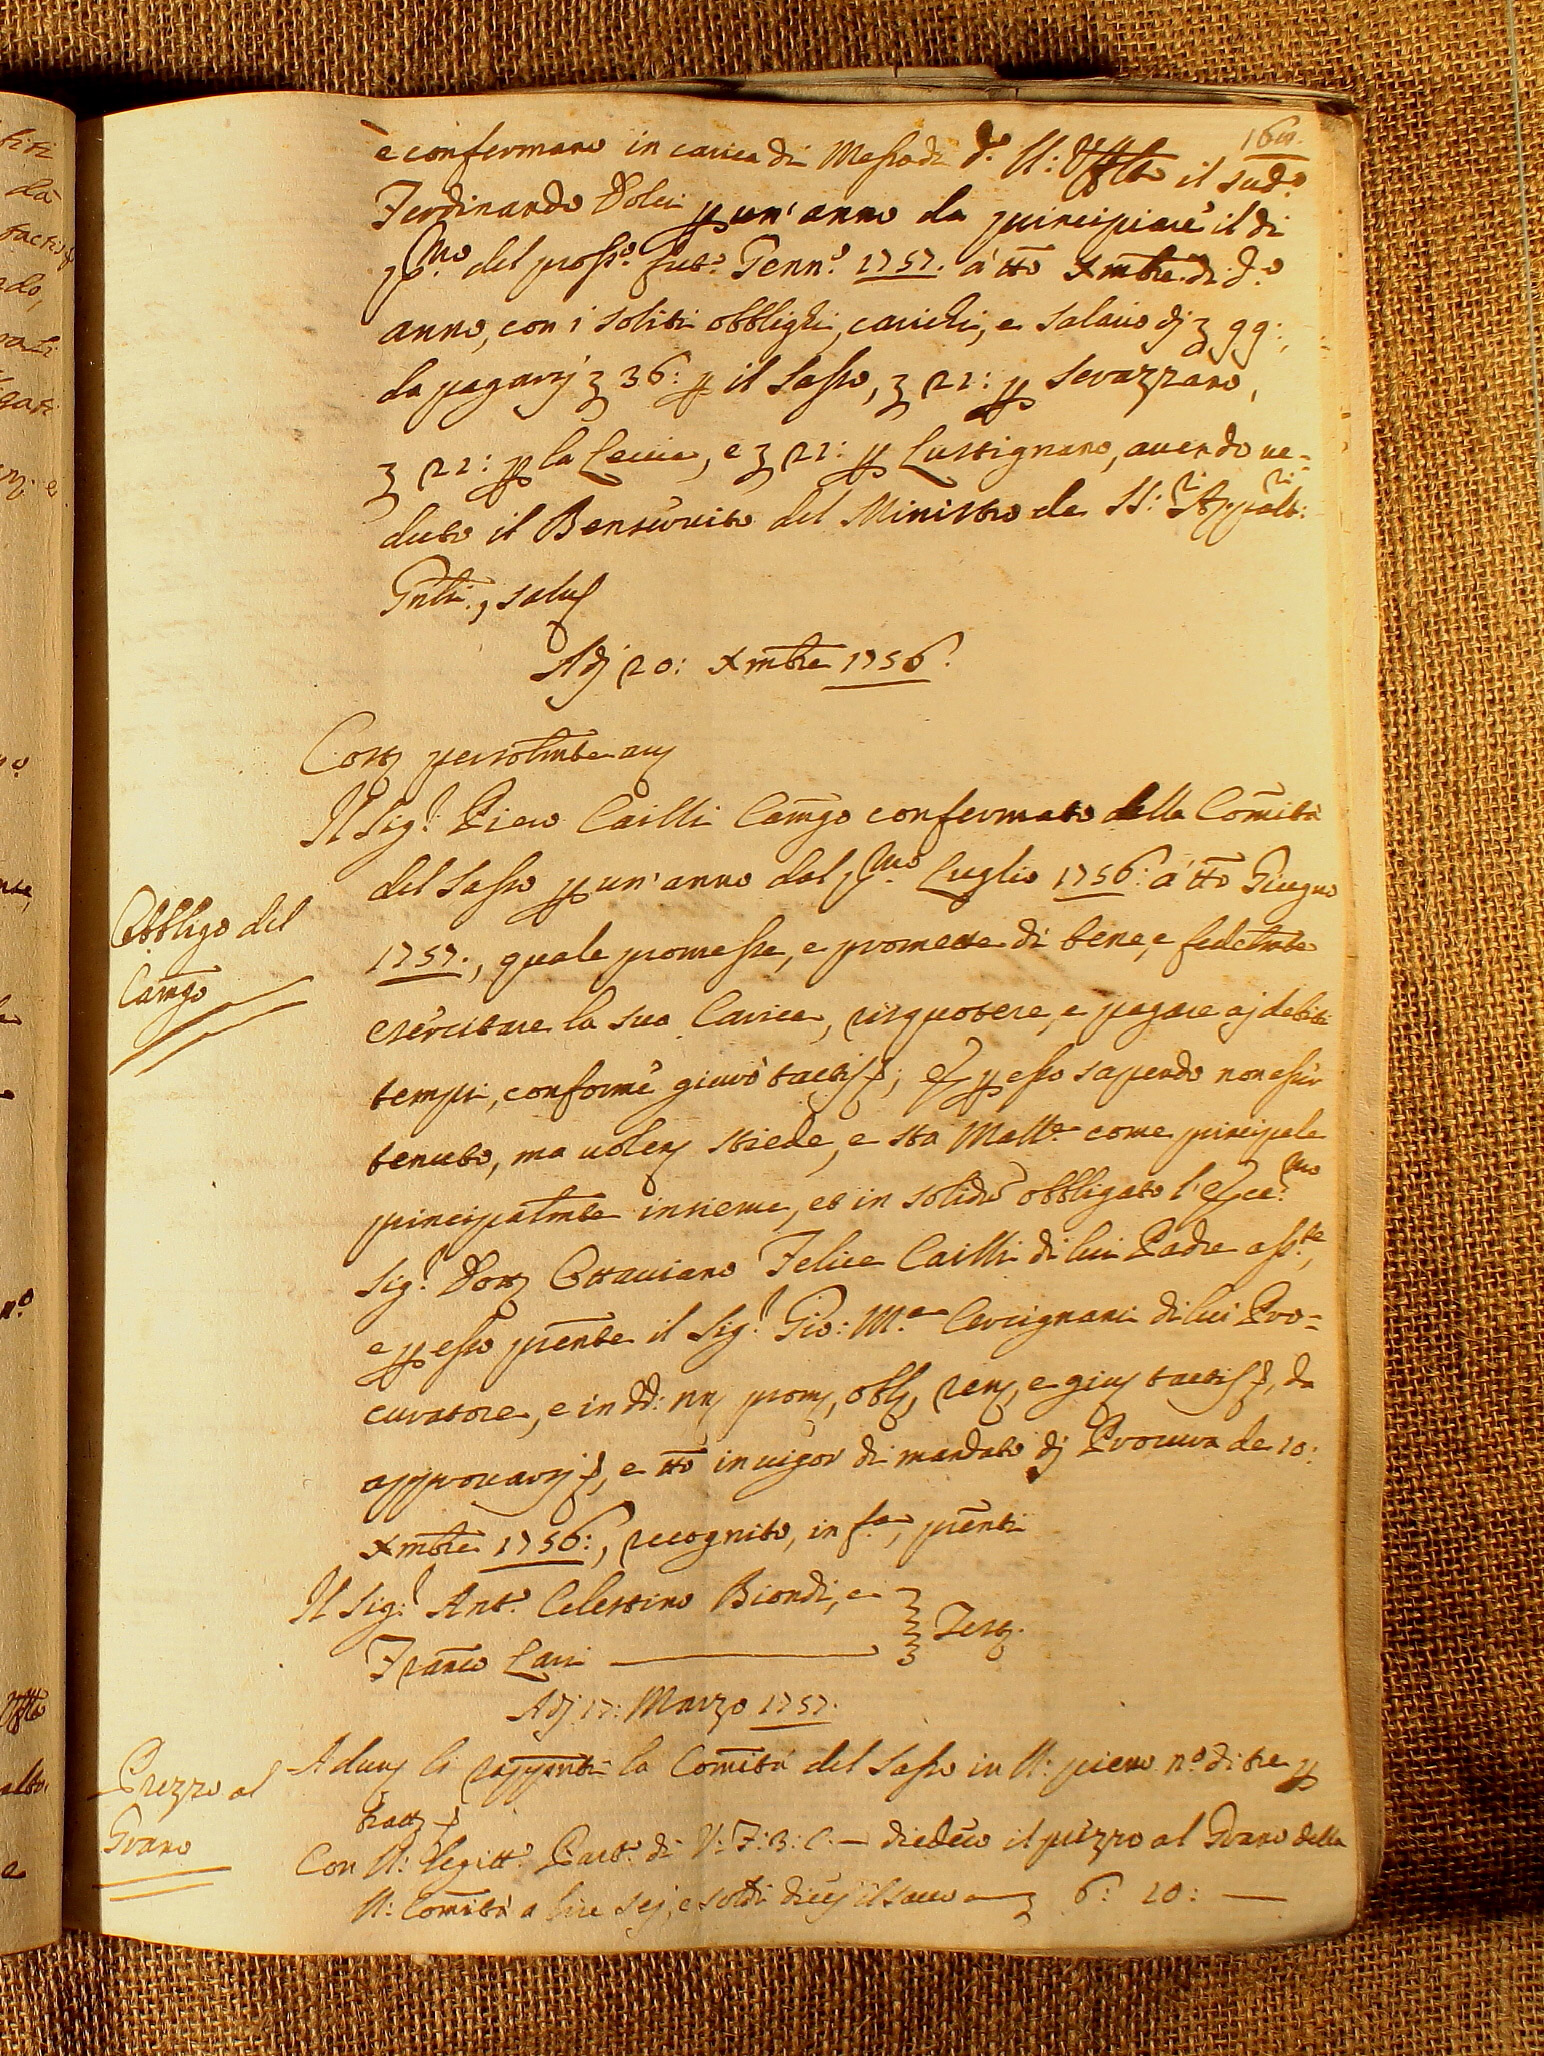 e confermano in carica di Messo di d.o U: Uffto il sudo
Ferdinando Dolci p un' anno da principiare il di
p.mo del pross.o fut.o Genn.o 1757. a' tto Xmbre di d.o
anno, con i soliti obblighi, carichi, e salario dj 99:,
da pagarsj 36: p il Sasso, 21: p Serazzano,
21: p la Leccia, e 21: p Lustignano, avendo ve=
duto il Benservito del Ministro de SS:ri Appalt:ri
Gnli, salus
Adj 20: Xmbre 1756.
Cost personalmte
Il Sig.r Piero Cailli Camgo confermato dalla Comità
del Sasso p un' anno dal p.mo Luglio 1756: a' tto Giugno
1757., quale promesse, e promette di bene, e fedelmte
esercitare la sua Carica, risquotere, e pagare aj debiti
tempi, conforme giurò tactis; e p esso sapendo non esser
tenuto, ma volens stiede, e sta Mallre come principale
principalmte insieme, et in solidum obbligato l'Ecce.mo
Sig.r Dott Ottaviano Felice Cailli di lui Padre ass.te,
e p esso presnte il Sig.r Gio: M.a Cercignani di lui Pro=
curatore, e in dd: nn prom, obbl, ren, e giur tactis, da
approvarsj, e tto in vigor di mandato dj Procura de 10:
Xmbre 1756:, recognito, in f.a, presnti
Il Sig.r Ant.o Celestino Biondi, e
Franco Lari Test.
Adj 17: Marzo 1757.
Adun li rappnti la Comità del Sasso in U: pieno n.o di tre p
tratt
Con U: legitt.o Part.o di V: F: 3: C: diedero il prezzo al Grano della
U: Comità a lire sej, e soldi diecj il sacco 6: 10:
Obbligo del
Camgo
Prezzo al
Grano